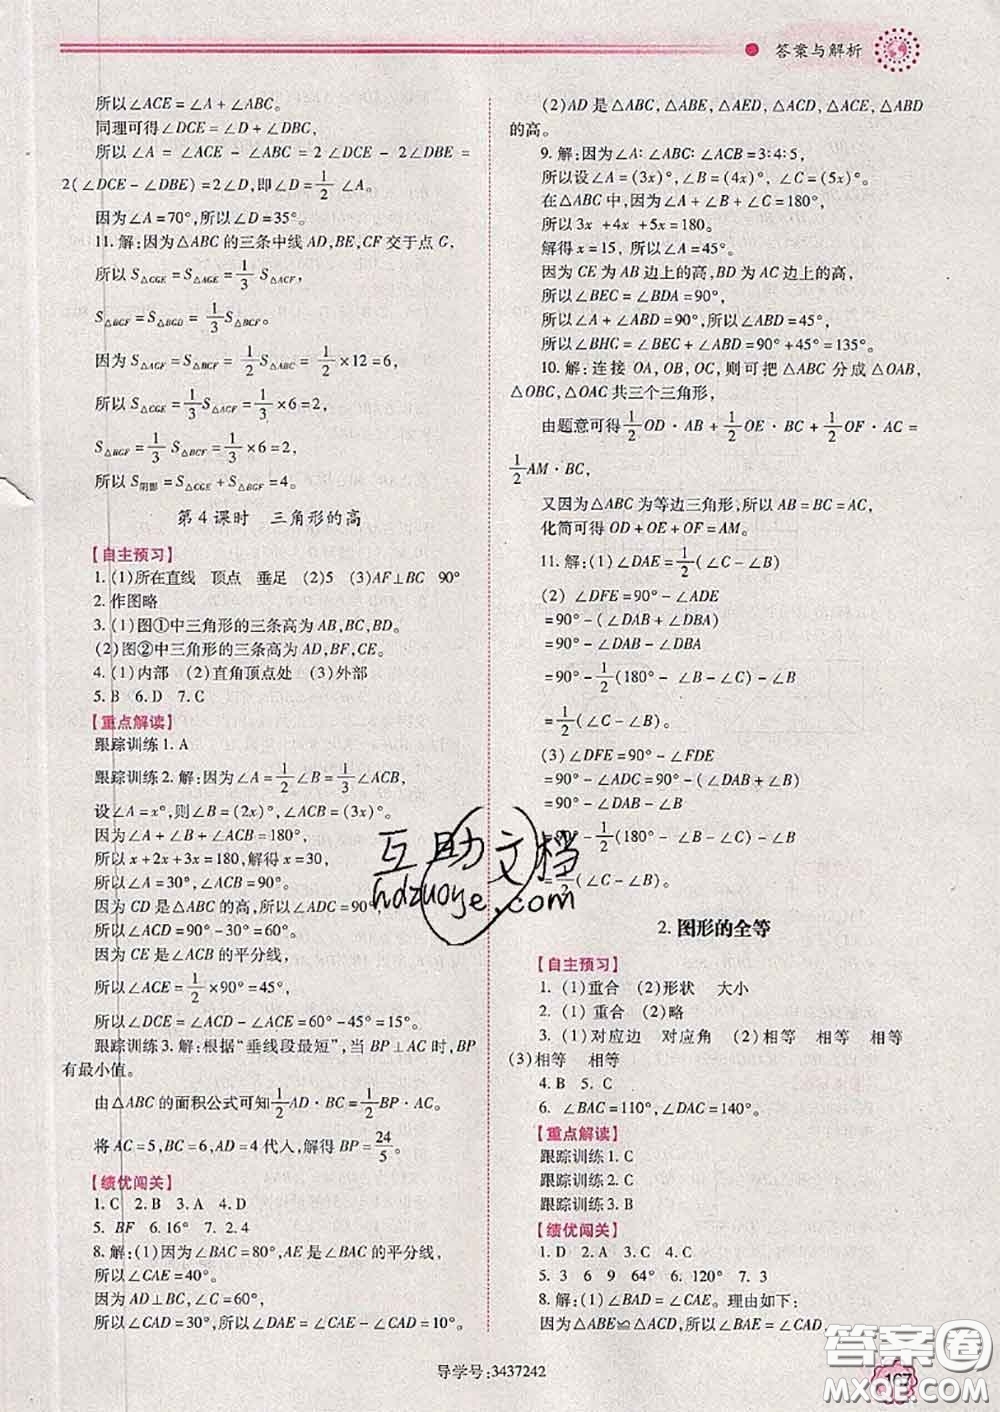 答案与解析
所以∠ACE=∠A+∠ABC。
同理可得∠DCE=∠D+∠DBC,
所以∠A=∠ACE-∠ABC=2∠DCE-2∠DBC=
2(∠DCE-∠DBE)=2∠D,即∠D=1/2∠A。
因为∠A=70°,所以∠D=35°。
11.解:因为△ABC的三条中线AD,BE,CF交于点G,
所以S△CGE=S△AGE=1/3 S△ACF,
S△BGF=S△BGD=1/3 S△BCF。
因为S△ACF=S△BCF=1/2 S△ABC=1/2×12=6,
所以S△CGE=1/3 S△ACF=1/3×6=2,
S△BGF=1/3 S△BCF=1/3×6=2,
所以S阴影=S△CGE+S△BGF=4。
第4课时 三角形的高
【自主预习】
1.(1)所在直线 顶点 垂足 (2)5 (3)AF⊥BC 90°
2.作图略
3.(1)图①中三角形的三条高为AB,BC,BD。
(2)图②中三角形的三条高为AD,BF,CE。
4.(1)内部 (2)直角顶点处 (3)外部
5.B 6.D 7.C
【重点解读】
跟踪训练1.A
跟踪训练2.解:因为∠A=1/2∠B=1/3∠ACB,
设∠A=x°,则∠B=(2x)°,∠ACB=(3x)°。
因为∠A+∠B+∠ACB=180°,
所以x+2x+3x=180,解得x=30,
所以∠A=30°,∠ACB=90°。
因为CD是△ABC的高,所以∠ADC=90°,
所以∠ACD=90°-30°=60°。
因为CE是∠ACB的平分线,
所以∠ACE=1/2×90°=45°,
所以∠DCE=∠ACD-∠ACE=60°-45°=15°。
跟踪训练3.解:根据“垂线段最短”,当BP⊥AC时,BP
有最小值。
由△ABC的面积公式可知1/2 AD·BC=1/2 BP·AC。
将AC=5,BC=6,AD=4代入,解得BP=24/5。
【绩优闯关】
1.C 2.B 3.A 4.D
5. BF 6.16° 7.2.4
8.解:(1)因为∠BAC=80°,AE是∠BAC的平分线,
所以∠CAE=40°。
因为AD⊥BC,∠C=60°,
所以∠CAD=30°,所以∠DAE=∠CAE-∠CAD=10°。
(2)AD是△ABC,△ABE,△AED,△ACD,△ACE,△ABD
的高。
9.解:因为∠A∶∠ABC∶∠ACB=3∶4∶5,
所以设∠A=(3x)°,∠B=(4x)°,∠C=(5x)°。
在△ABC中,因为∠A+∠B+∠C=180°,
所以3x+4x+5x=180。
解得x=15,所以∠A=45°。
因为CE为AB边上的高,BD为AC边上的高,
所以∠BEC=∠BDA=90°,
所以∠A+∠ABD=90°,所以∠ABD=45°,
所以∠BHC=∠BEC+∠ABD=90°+45°=135°。
10.解:连接OA,OB,OC,则可把△ABC分成△OAB,
△OBC,△OAC共三个三角形,
由题意可得1/2 OD·AB+1/2 OE·BC+1/2 OF·AC=
1/2 AM·BC,
又因为△ABC为等边三角形,所以AB=BC=AC,
化简可得OD+OE+OF=AM。
11.解:(1)∠DAE=1/2(∠C-∠B)
(2)∠DFE=90°-∠ADE
=90°-(∠DAB+∠DBA)
=90°-1/2(180°-∠B-∠C)-∠B
=1/2(∠C-∠B)。
(3)∠DFE=90°-∠FDE
=90°-∠ADC=90°-(∠DAB+∠B)
=90°-∠DAB-∠B
=90°-1/2(180°-∠B-∠C)-∠B
=1/2(∠C-∠B)。
2.图形的全等
【自主预习】
1. (1)重合 (2)形状 大小
2. (1)重合 (2)略
3. (1)对应边 对应角 (2)相等 相等 相等
(3)相等 相等
4. B 5. C
6. ∠BAC=110°,∠DAC=140°。
【重点解读】
跟踪训练1.C
跟踪训练2.C
跟踪训练3.B
【绩优闯关】
1.D 2.A 3.C 4.C
5. 3 6 9 64° 6. 120° 7. 3
8.解:(1)∠BAD=∠CAE。理由如下:
因为△ABE≌△ACD,所以∠BAE=∠CAD,
导学号:3437242
167
互助文档
hdzuoye.com
答案圈
MXQE.COM